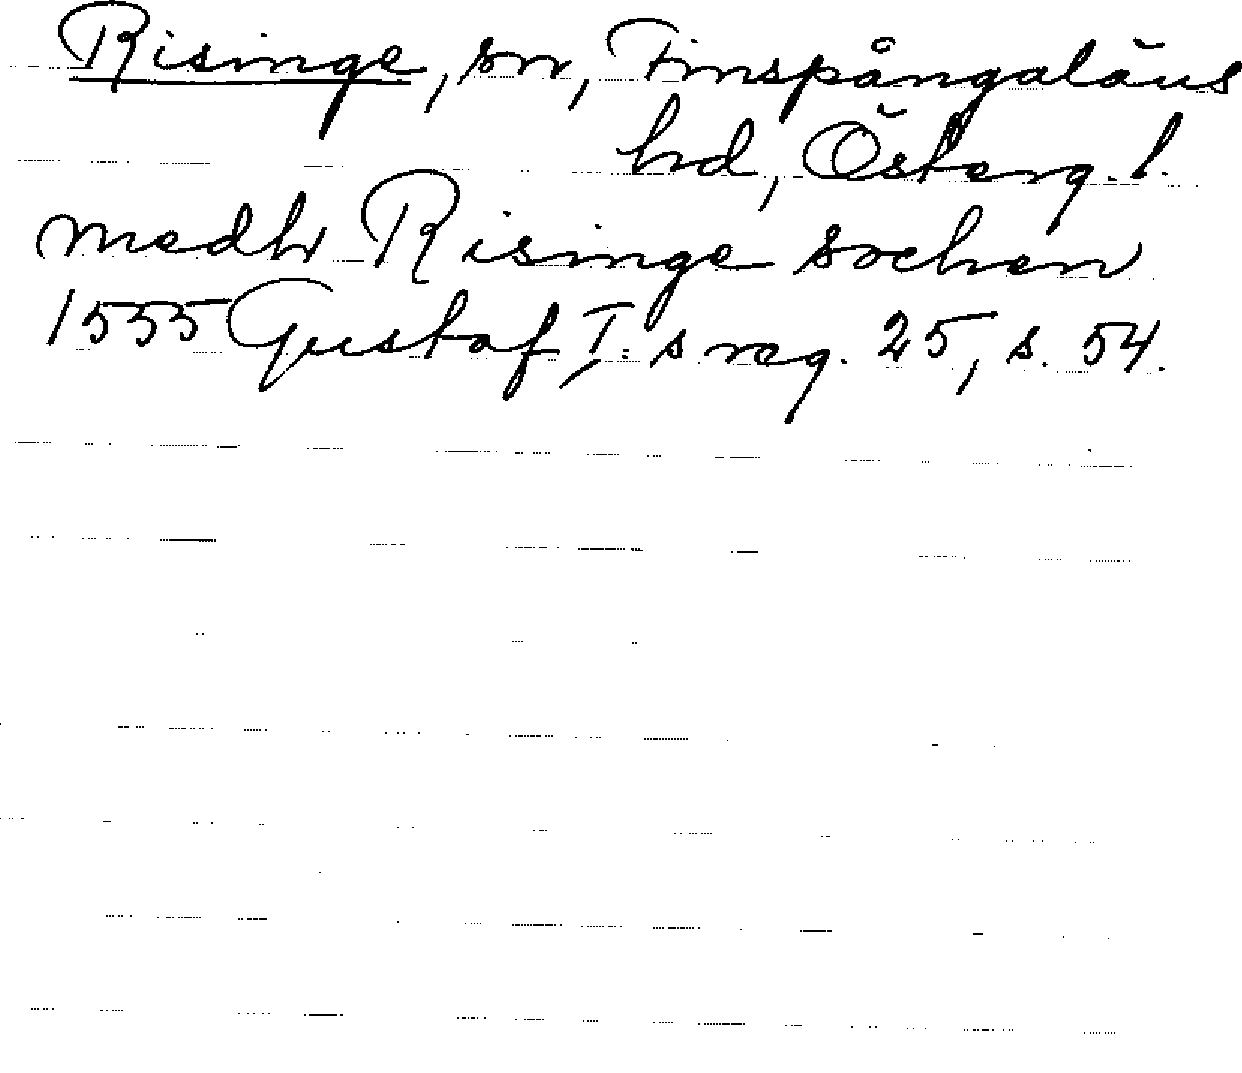 Risinge, sn, Finspångaläns
hd, Österg. l.
medh Risinge sochen
1555 Gustaf I:s reg. 25, s. 54.